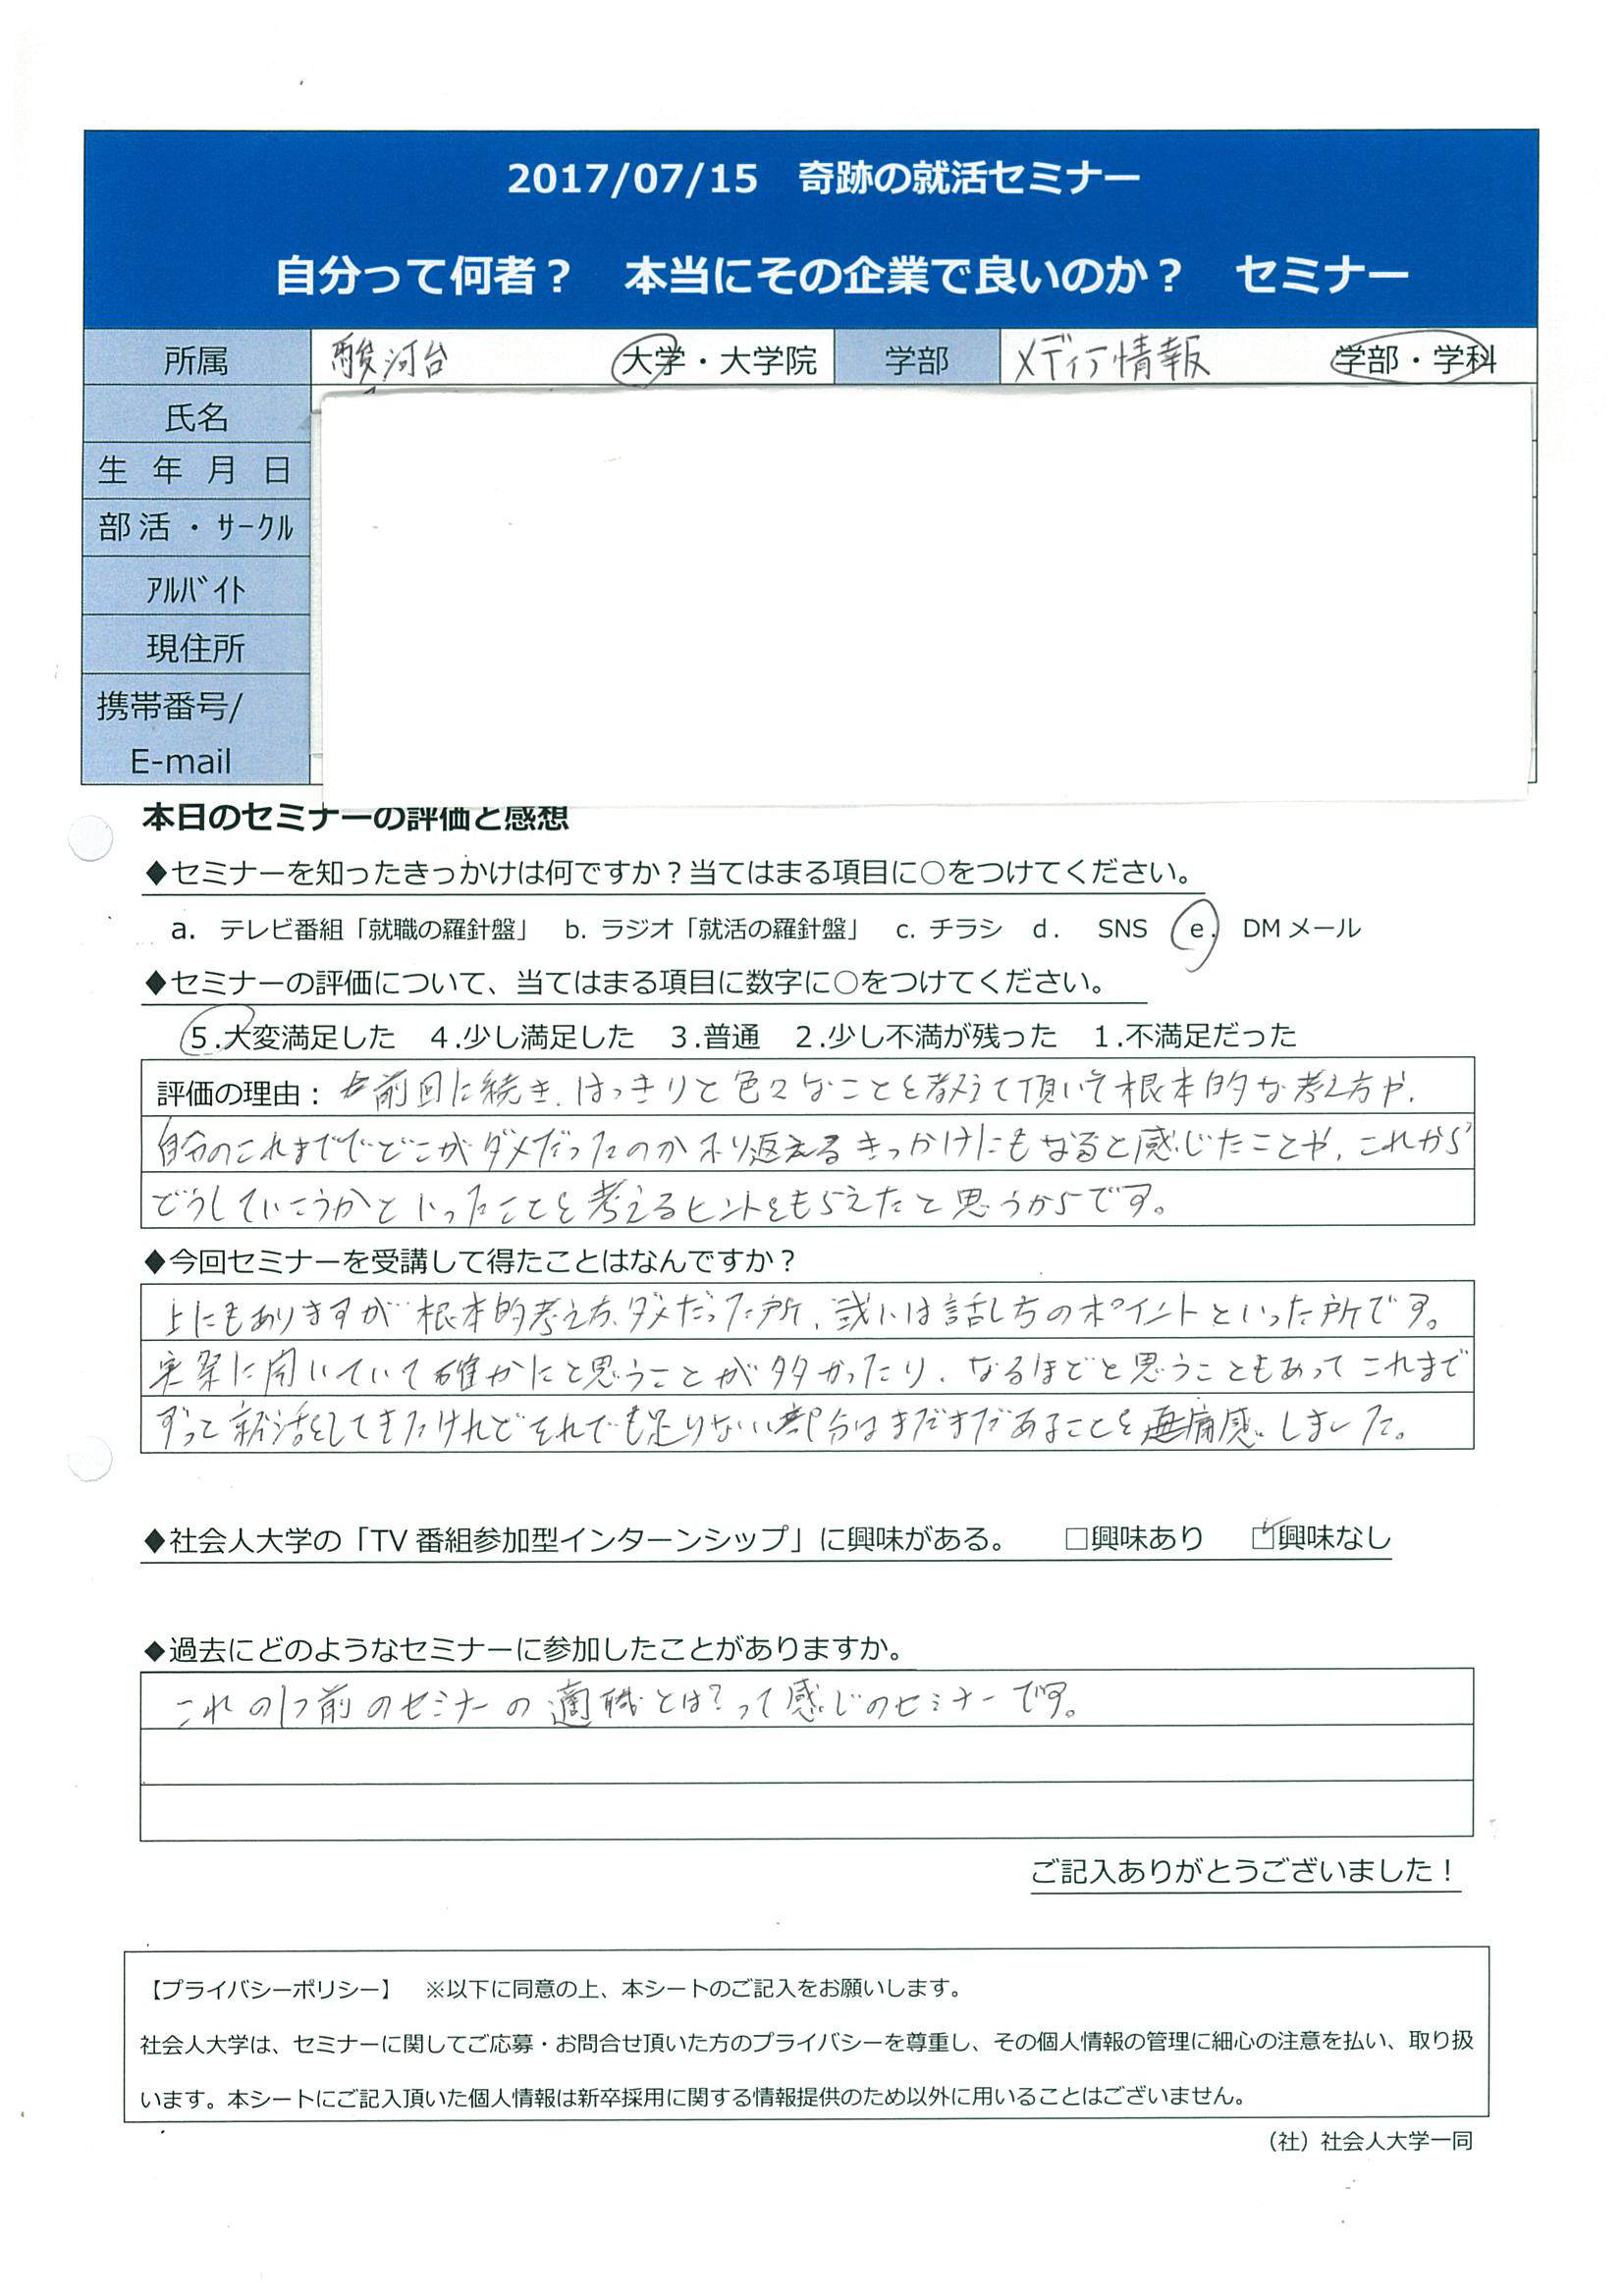 2017/07/15　奇跡の就活セミナー
自分って何者？　本当にその企業で良いのか？　セミナー
所属 駿河台 大学・大学院 学部 メディア情報 学部・学科
氏名
生年月日
部活・ｻｰｸﾙ
ｱﾙﾊﾞｲﾄ
現住所
携帯番号/
E-mail
本日のセミナーの評価と感想
◆セミナーを知ったきっかけは何ですか？当てはまる項目に○をつけてください。
a. テレビ番組「就職の羅針盤」 b. ラジオ「就活の羅針盤」 c. チラシ d. SNS e. DMメール
◆セミナーの評価について、当てはまる項目に数字に○をつけてください。
5.大変満足した 4.少し満足した 3.普通 2.少し不満が残った 1.不満足だった
評価の理由：前回に続き、はっきりと色々なことを教えて頂いて根本的な考え方や、
自分のこれまででどこがダメだったのかふり返えるきっかけにもなると感じたことや、これから
どうしていこうかといったことを考えるヒントをもらえたと思うからです。
◆今回セミナーを受講して得たことはなんですか？
上にもありますが根本的考え方、ダメだった所、或いは話し方のポイントといった所です。
実際に聞いていて確かにと思うことが多かったり、なるほどと思うこともあってこれまで
ずっと就活をしてきたけれどそれでも足りない部分はまだまだあることを痛感しました。
◆社会人大学の「TV番組参加型インターンシップ」に興味がある。 □興味あり □興味なし
◆過去にどのようなセミナーに参加したことがありますか。
これの1つ前のセミナーの適職とは？って感じのセミナーです。
ご記入ありがとうございました！
【プライバシーポリシー】　※以下に同意の上、本シートのご記入をお願いします。
社会人大学は、セミナーに関してご応募・お問合せ頂いた方のプライバシーを尊重し、その個人情報の管理に細心の注意を払い、取り扱
います。本シートにご記入頂いた個人情報は新卒採用に関する情報提供のため以外に用いることはございません。
（社）社会人大学一同